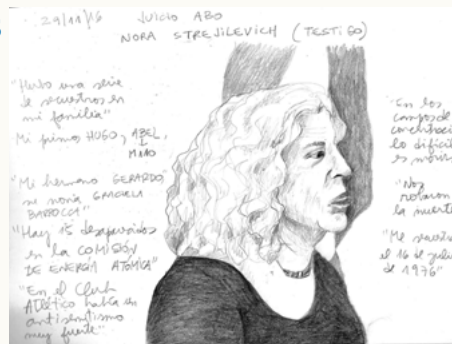 29/11/16 JUICIO ABO
NORA STREJILEVICH (TESTIGO)
"Hubo una serie
de secuestros en
mi familia"
Mi primos HUGO, ABEL,
"Mi hermano GERARDO,
su novia GRACIELA
BARROCA"
"Hay 15 desaparecidos
en la COMISIÓN
DE ENERGÍA ATÓMICA"
"En el Club
Atlético había un
antisemitismo
muy fuerte"
"En los
campos de
concentración
lo difícil
es morir"
"Nos
robaron
la muerte"
"Me secuestran
el 16 de julio
de 1976"